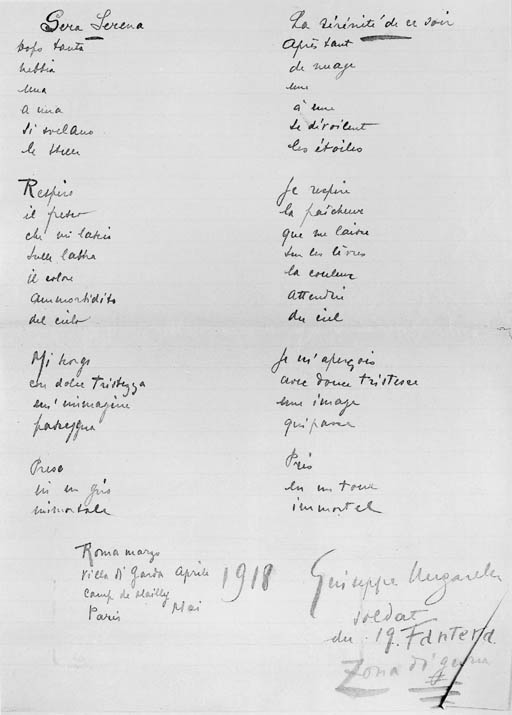 Sera Serena
Dopo tanta
nebbia
una
a una
si svelano
le stelle
Respiro
il fresco
che mi lascia
sulle labbra
il colore
ammorbidito
del cielo
Mi
con dolce tristezza
un'immagine
passeggera
Presa
in un giro
immortale
Roma marzo
Villa di Garda Aprile
Camp de Mailly
Mai
Paris
1918
La sérénité de ce soir
Après tant
de nuage
une
à une
se dévoilent
les étoiles
Je respire
la fraîcheur
que me laisse
sur les lèvres
la couleur
attendri
du ciel
Je m'aperçois
avec douce tristesse
une image
qui passe
Pris
en un tour
immortel
Giuseppe Ungaretti
soldat
du 19. Fanteria
Zona di guerra